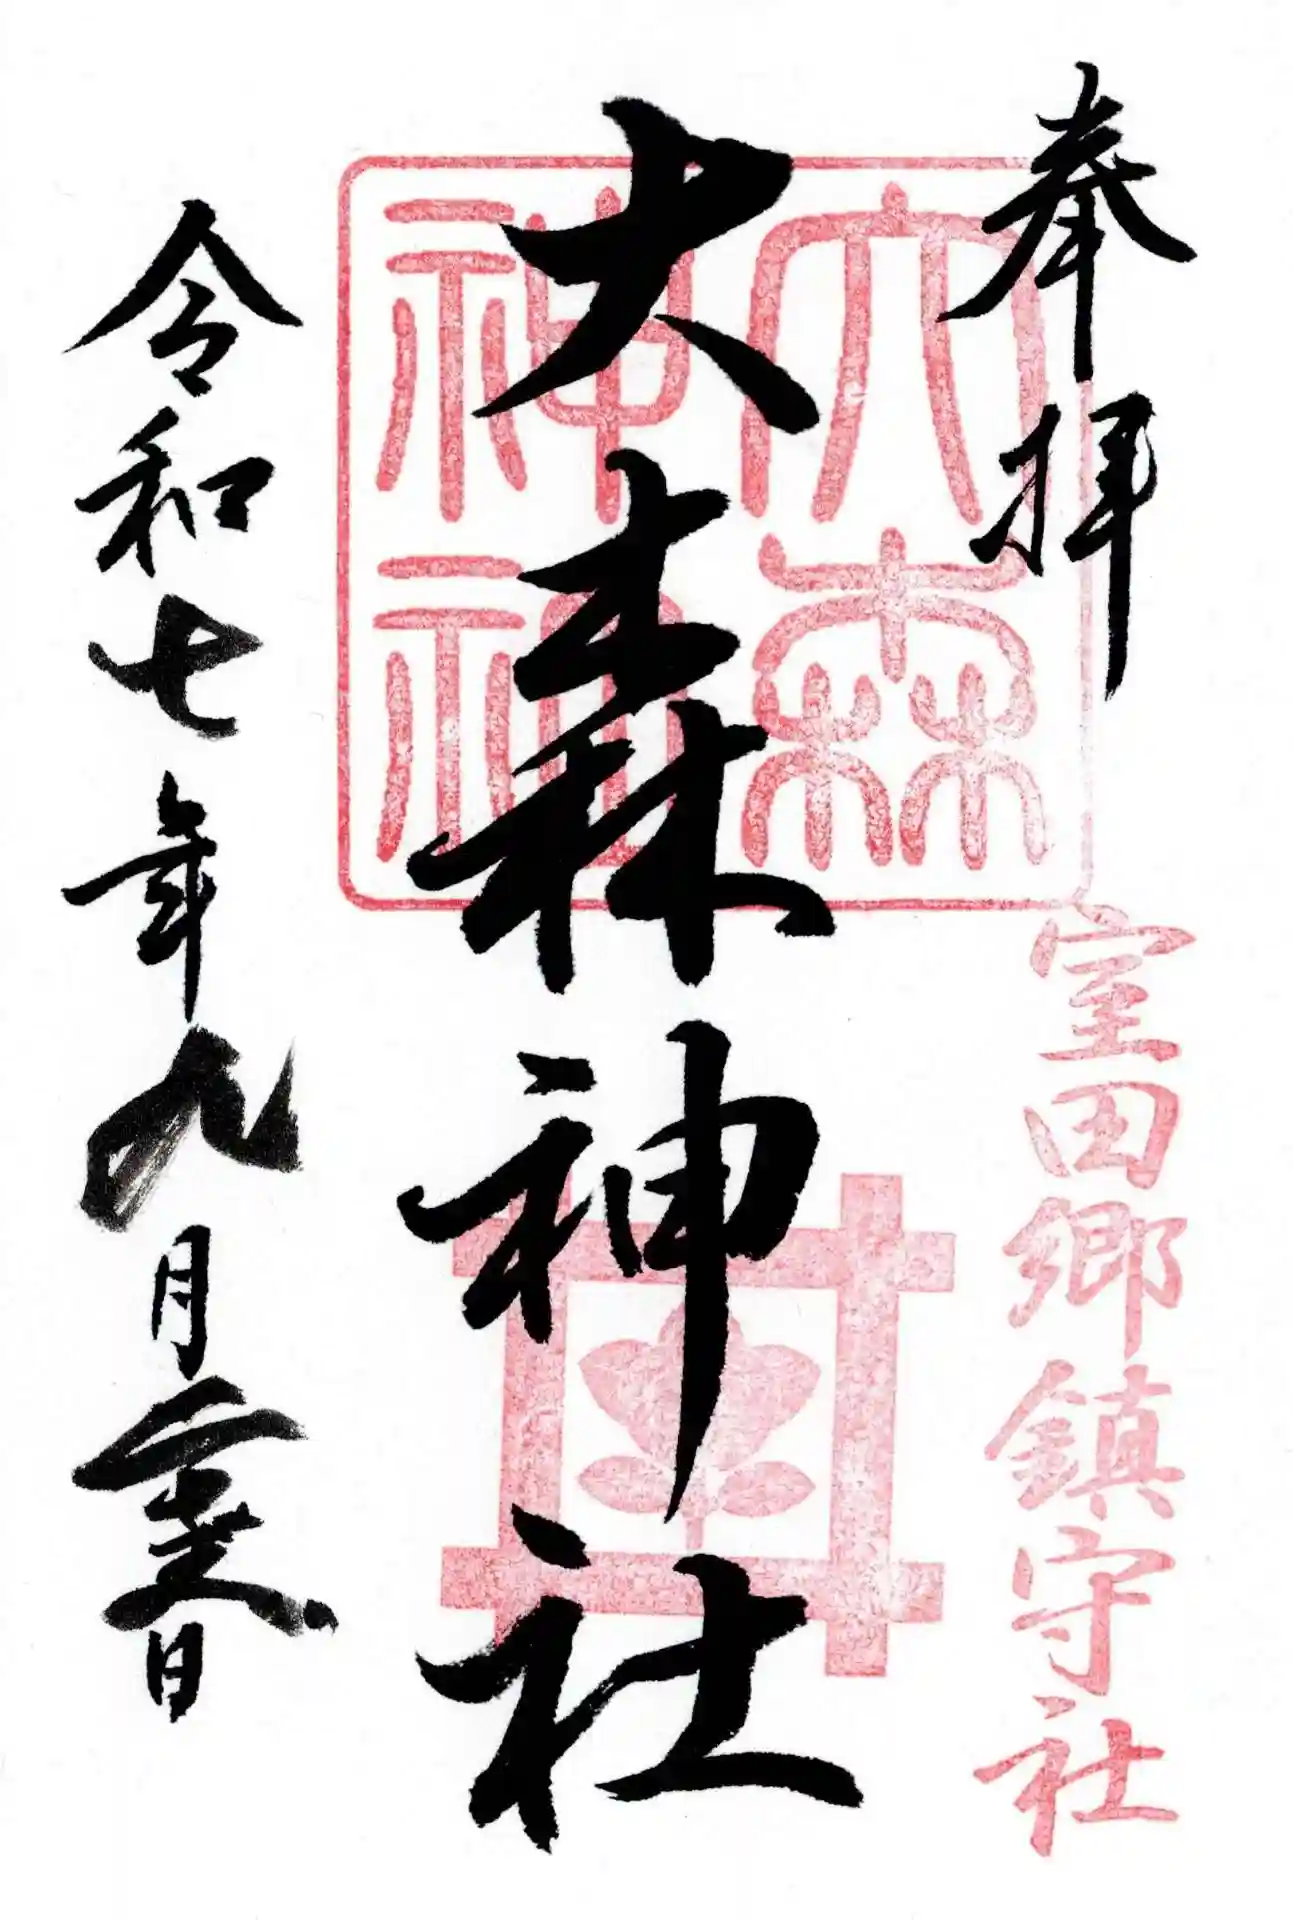 奉拝
室田郷鎮守社
大森神社
大森神社
令和七年九月二十三日